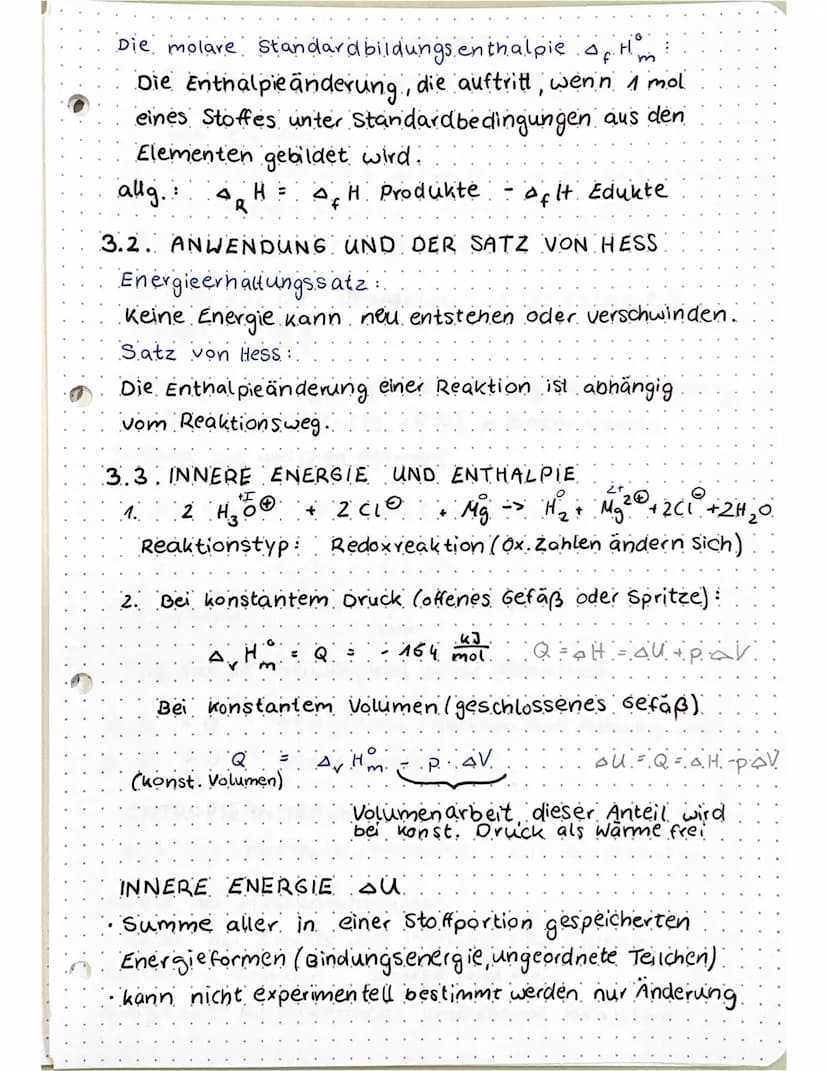 Die molare Standardbildungsenthalpie Δ_f H°_m :
Die Enthalpieänderung, die auftritt, wenn 1 mol
eines Stoffes unter Standardbedingungen aus den
Elementen gebildet wird.
allg.: Δ_R H = Δ_f H Produkte - Δ_f H Edukte
3.2. ANWENDUNG UND DER SATZ VON HESS
Energieerhaltungssatz:
Keine Energie kann neu entstehen oder verschwinden.
Satz von Hess:
Die Enthalpieänderung einer Reaktion ist abhängig
vom Reaktionsweg.
3.3. INNERE ENERGIE UND ENTHALPIE
+I 0 0 2+
1. 2 H₃O⊕ + 2 Cl⊖ + Mg -> H₂ + Mg²⊕ + 2Cl⊖ + 2H₂O
Reaktionstyp: Redoxreaktion (Ox. Zahlen ändern sich)
2. Bei konstantem Druck (offenes Gefäß oder Spritze):
Δ_r H°_m = Q = - 164 kJ/mol Q = ΔH = ΔU + p·ΔV
Bei konstantem Volumen (geschlossenes Gefäß)
Q = Δ_r H°_m - p · ΔV ΔU = Q = ΔH - pΔV
(konst. Volumen)
Volumenarbeit, dieser Anteil wird
bei konst. Druck als Wärme frei
INNERE ENERGIE ΔU
· Summe aller in einer Stoffportion gespeicherten
Energieformen (Bindungsenergie, ungeordnete Teilchen)
· kann nicht experimentell bestimmt werden nur Änderung